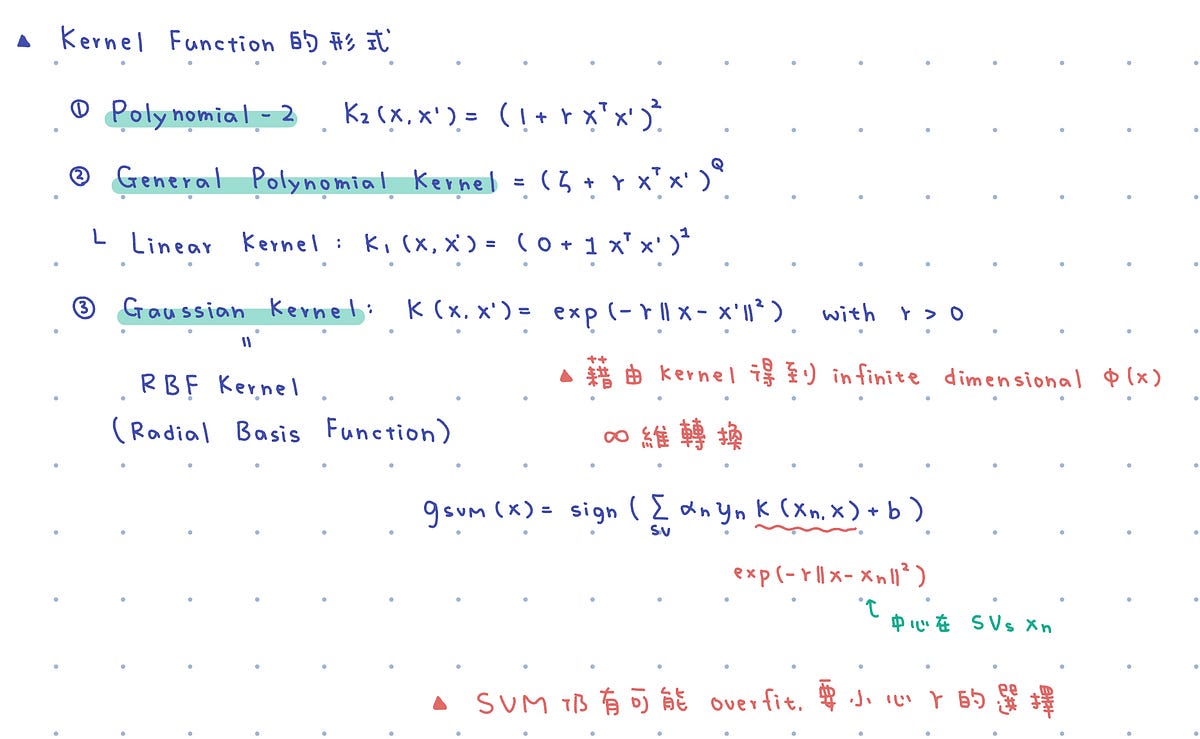 ▲ Kernel Function 的形式
① Polynomial - 2 K₂(x, x') = (1 + γ xᵀx')²
② General Polynomial Kernel = (ζ + γ xᵀx')^Q
└ Linear Kernel : K₁(x, x') = (0 + 1 xᵀx')¹
③ Gaussian Kernel : K(x, x') = exp(-γ||x - x'||²) with γ > 0
||
RBF Kernel
(Radial Basis Function)
▲ 藉由 kernel 得到 infinite dimensional Φ(x)
∞ 維轉換
gsvm(x) = sign(Σ_SV αₙyₙ K(xₙ, x) + b)
exp(-γ||x - xₙ||²)
↑ 中心在 SVs xₙ
▲ SVM 仍有可能 overfit, 要小心 γ 的選擇